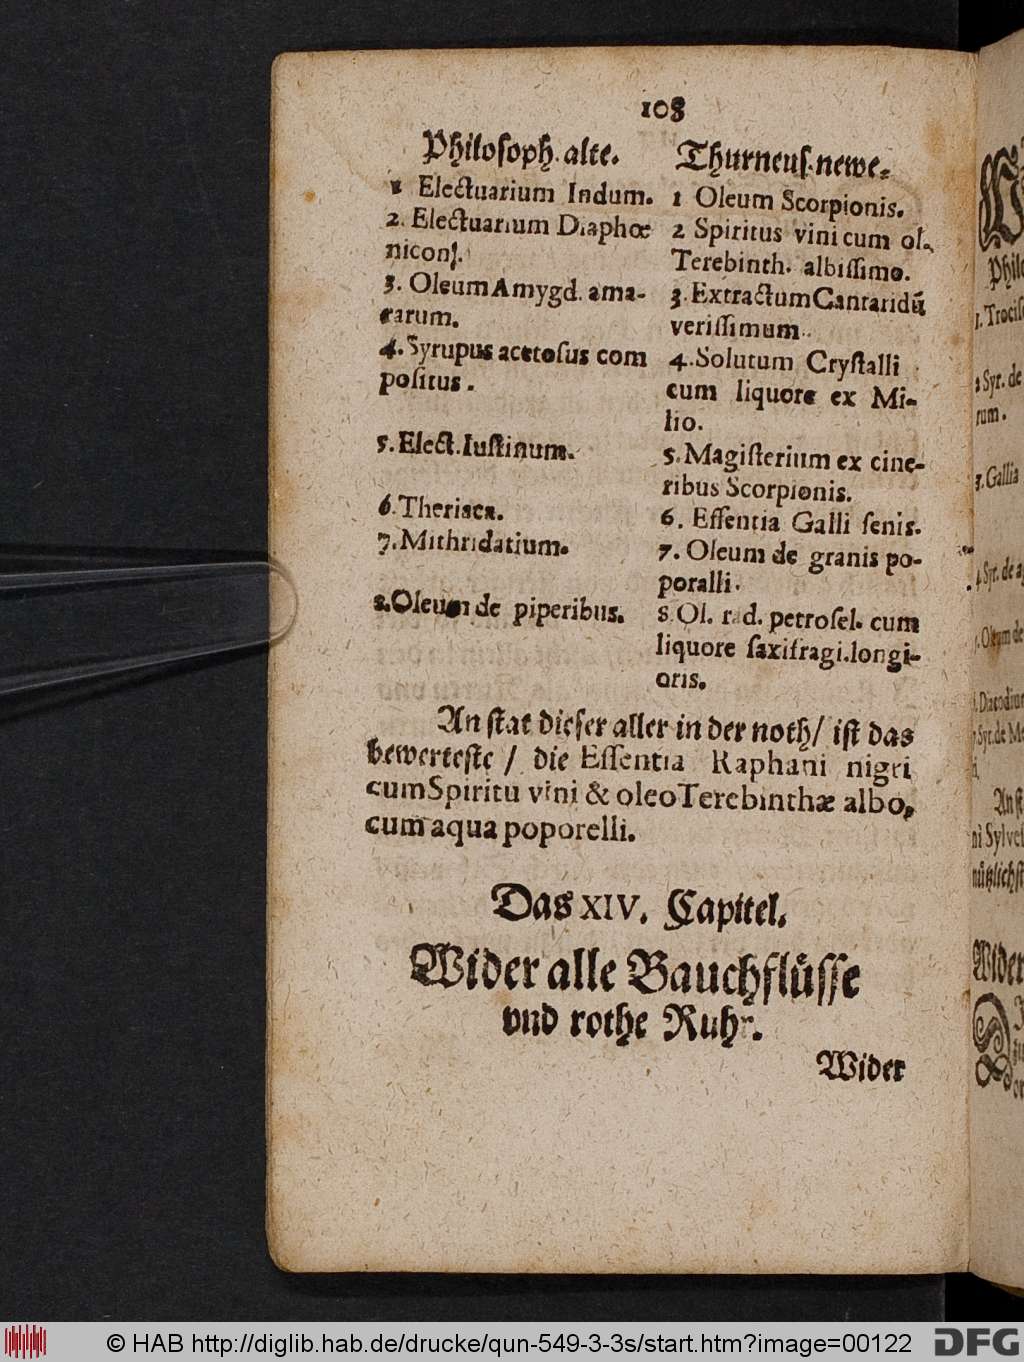 108
Philosoph. alte.
1 Electuarium Indum.
2. Electuarium Diaphœ
niconſ.
3. Oleum Amygd. ama-
rarum.
4. Syrupus acetoſus com
poſitus.
5. Elect. Iuſtinum.
6. Theriaca.
7. Mithridatium.
8. Oleum de piperibus.
Thurneuſ. newe.
1 Oleum Scorpionis.
2 Spiritus vini cum ol.
Terebinth. albiſſimo.
3. Extractum Cantaridū
veriſſimum.
4. Solutum Cryſtalli
cum liquore ex Mi-
lio.
5. Magiſterium ex cine-
ribus Scorpionis.
6. Eſſentia Galli ſenis.
7. Oleum de granis po-
poralli.
8 Ol. rad. petroſel. cum
liquore ſaxifragi. longi-
oris.
An ſtat dieſer aller in der noth/ iſt das
bewerteſte / die Eſſentia Raphani nigri
cum Spiritu vini & oleo Terebinthæ albo,
cum aqua poporelli.
Das XIV. Capitel.
Wider alle Bauchflüſſe
vnd rothe Ruhr.
Wider
Philo
1. Trociſc
2 Syr. de
rum.
3. Gallia
4. Syr. de a
5. Oleum de
An ſt
ni Sylveſ
nützlichſt
Wider
© HAB http://diglib.hab.de/drucke/qun-549-3-3s/start.htm?image=00122
DFG